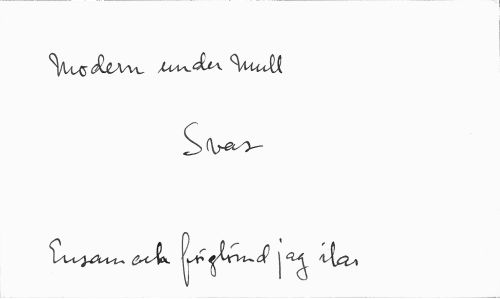 Modern under mull
Svar
Ensam och förglömd jag ilar